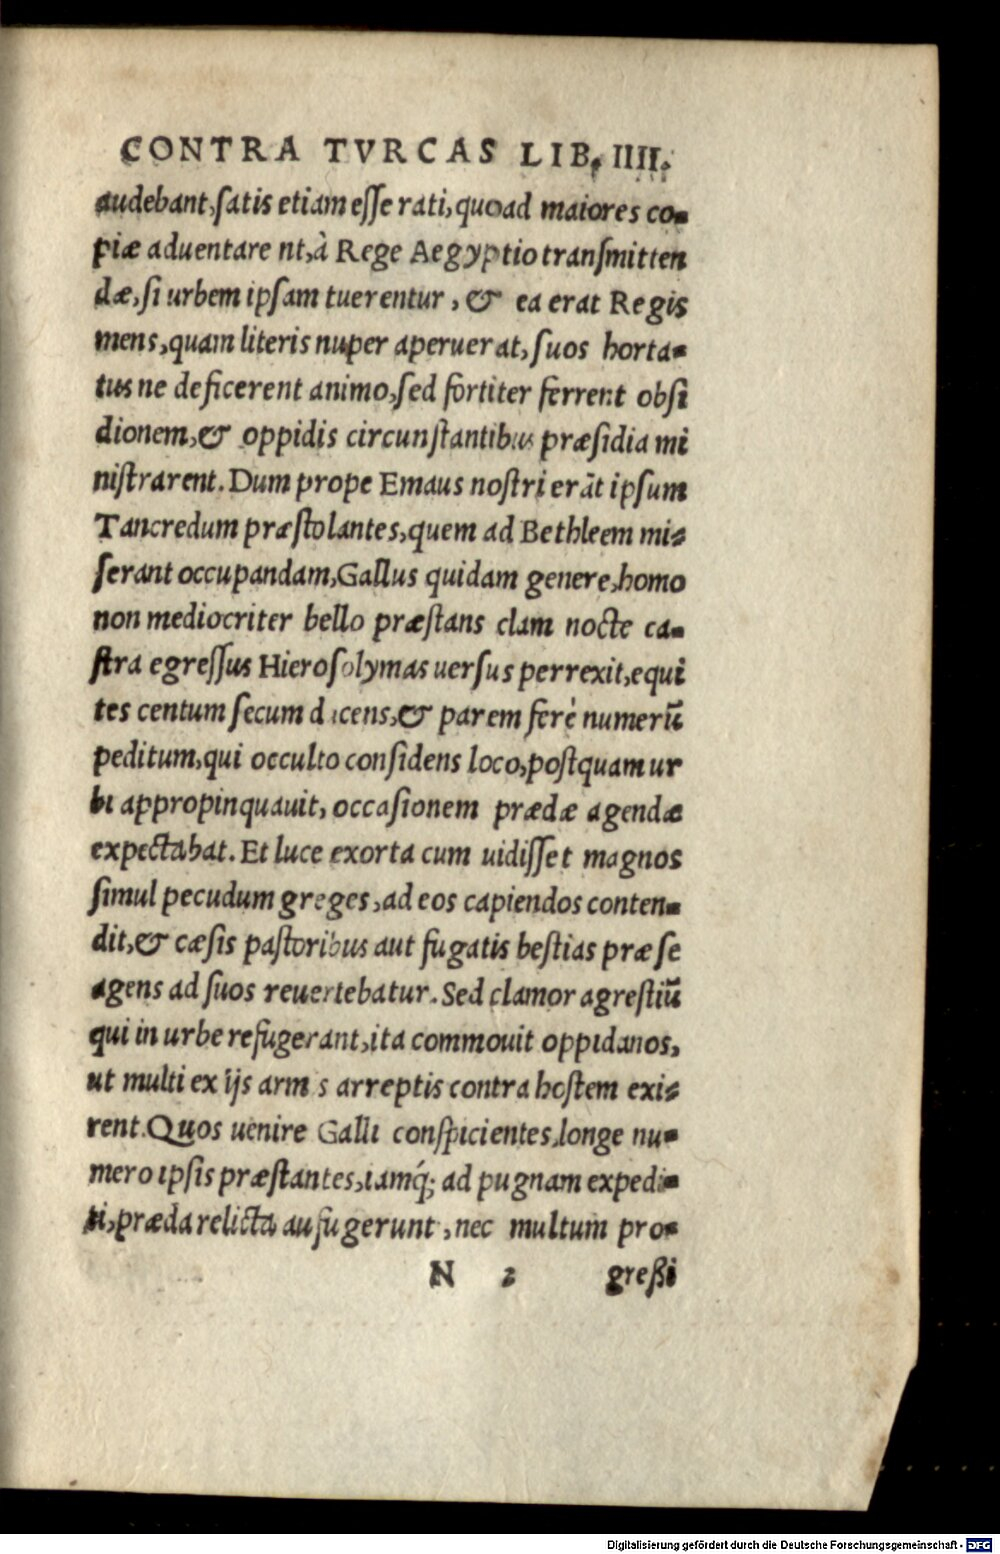 CONTRA TVRCAS LIB. IIII.
audebant, satis etiam esse rati, quoad maiores co-
piæ aduentare nt, à Rege Aegyptio transmitten
dæ, si urbem ipsam tuerentur, & ea erat Regis
mens, quam literis nuper aperuerat, suos horta-
tus ne deficerent animo, sed fortiter ferrent obsi
dionem, & oppidis circunstantibus præsidia mi
nistrarent. Dum prope Emaus nostri erãt ipsum
Tancredum præstolantes, quem ad Bethleem mi-
serant occupandam, Gallus quidam genere, homo
non mediocriter bello præstans clam nocte ca-
stra egressus Hierosolymas uersus perrexit, equi
tes centum secum ducens, & parem ferè numerũ
peditum, qui occulto considens loco, postquam ur
bi appropinquauit, occasionem prædæ agendæ
expectabat. Et luce exorta cum uidisset magnos
simul pecudum greges, ad eos capiendos conten-
dit, & cæsis pastoribus aut fugatis bestias præ se
agens ad suos reuertebatur. Sed clamor agrestiũ
qui in urbe refugerant, ita commouit oppidanos,
ut multi ex ijs arm s arreptis contra hostem exi-
rent. Quos uenire Galli conspicientes, longe nu-
mero ipsis præstantes, iamq́; ad pugnam expedi-
ti, præda relicta aufugerunt, nec multum pro-
N 2 greßi
Digitalisierung gefördert durch die Deutsche Forschungsgemeinschaft - DFG